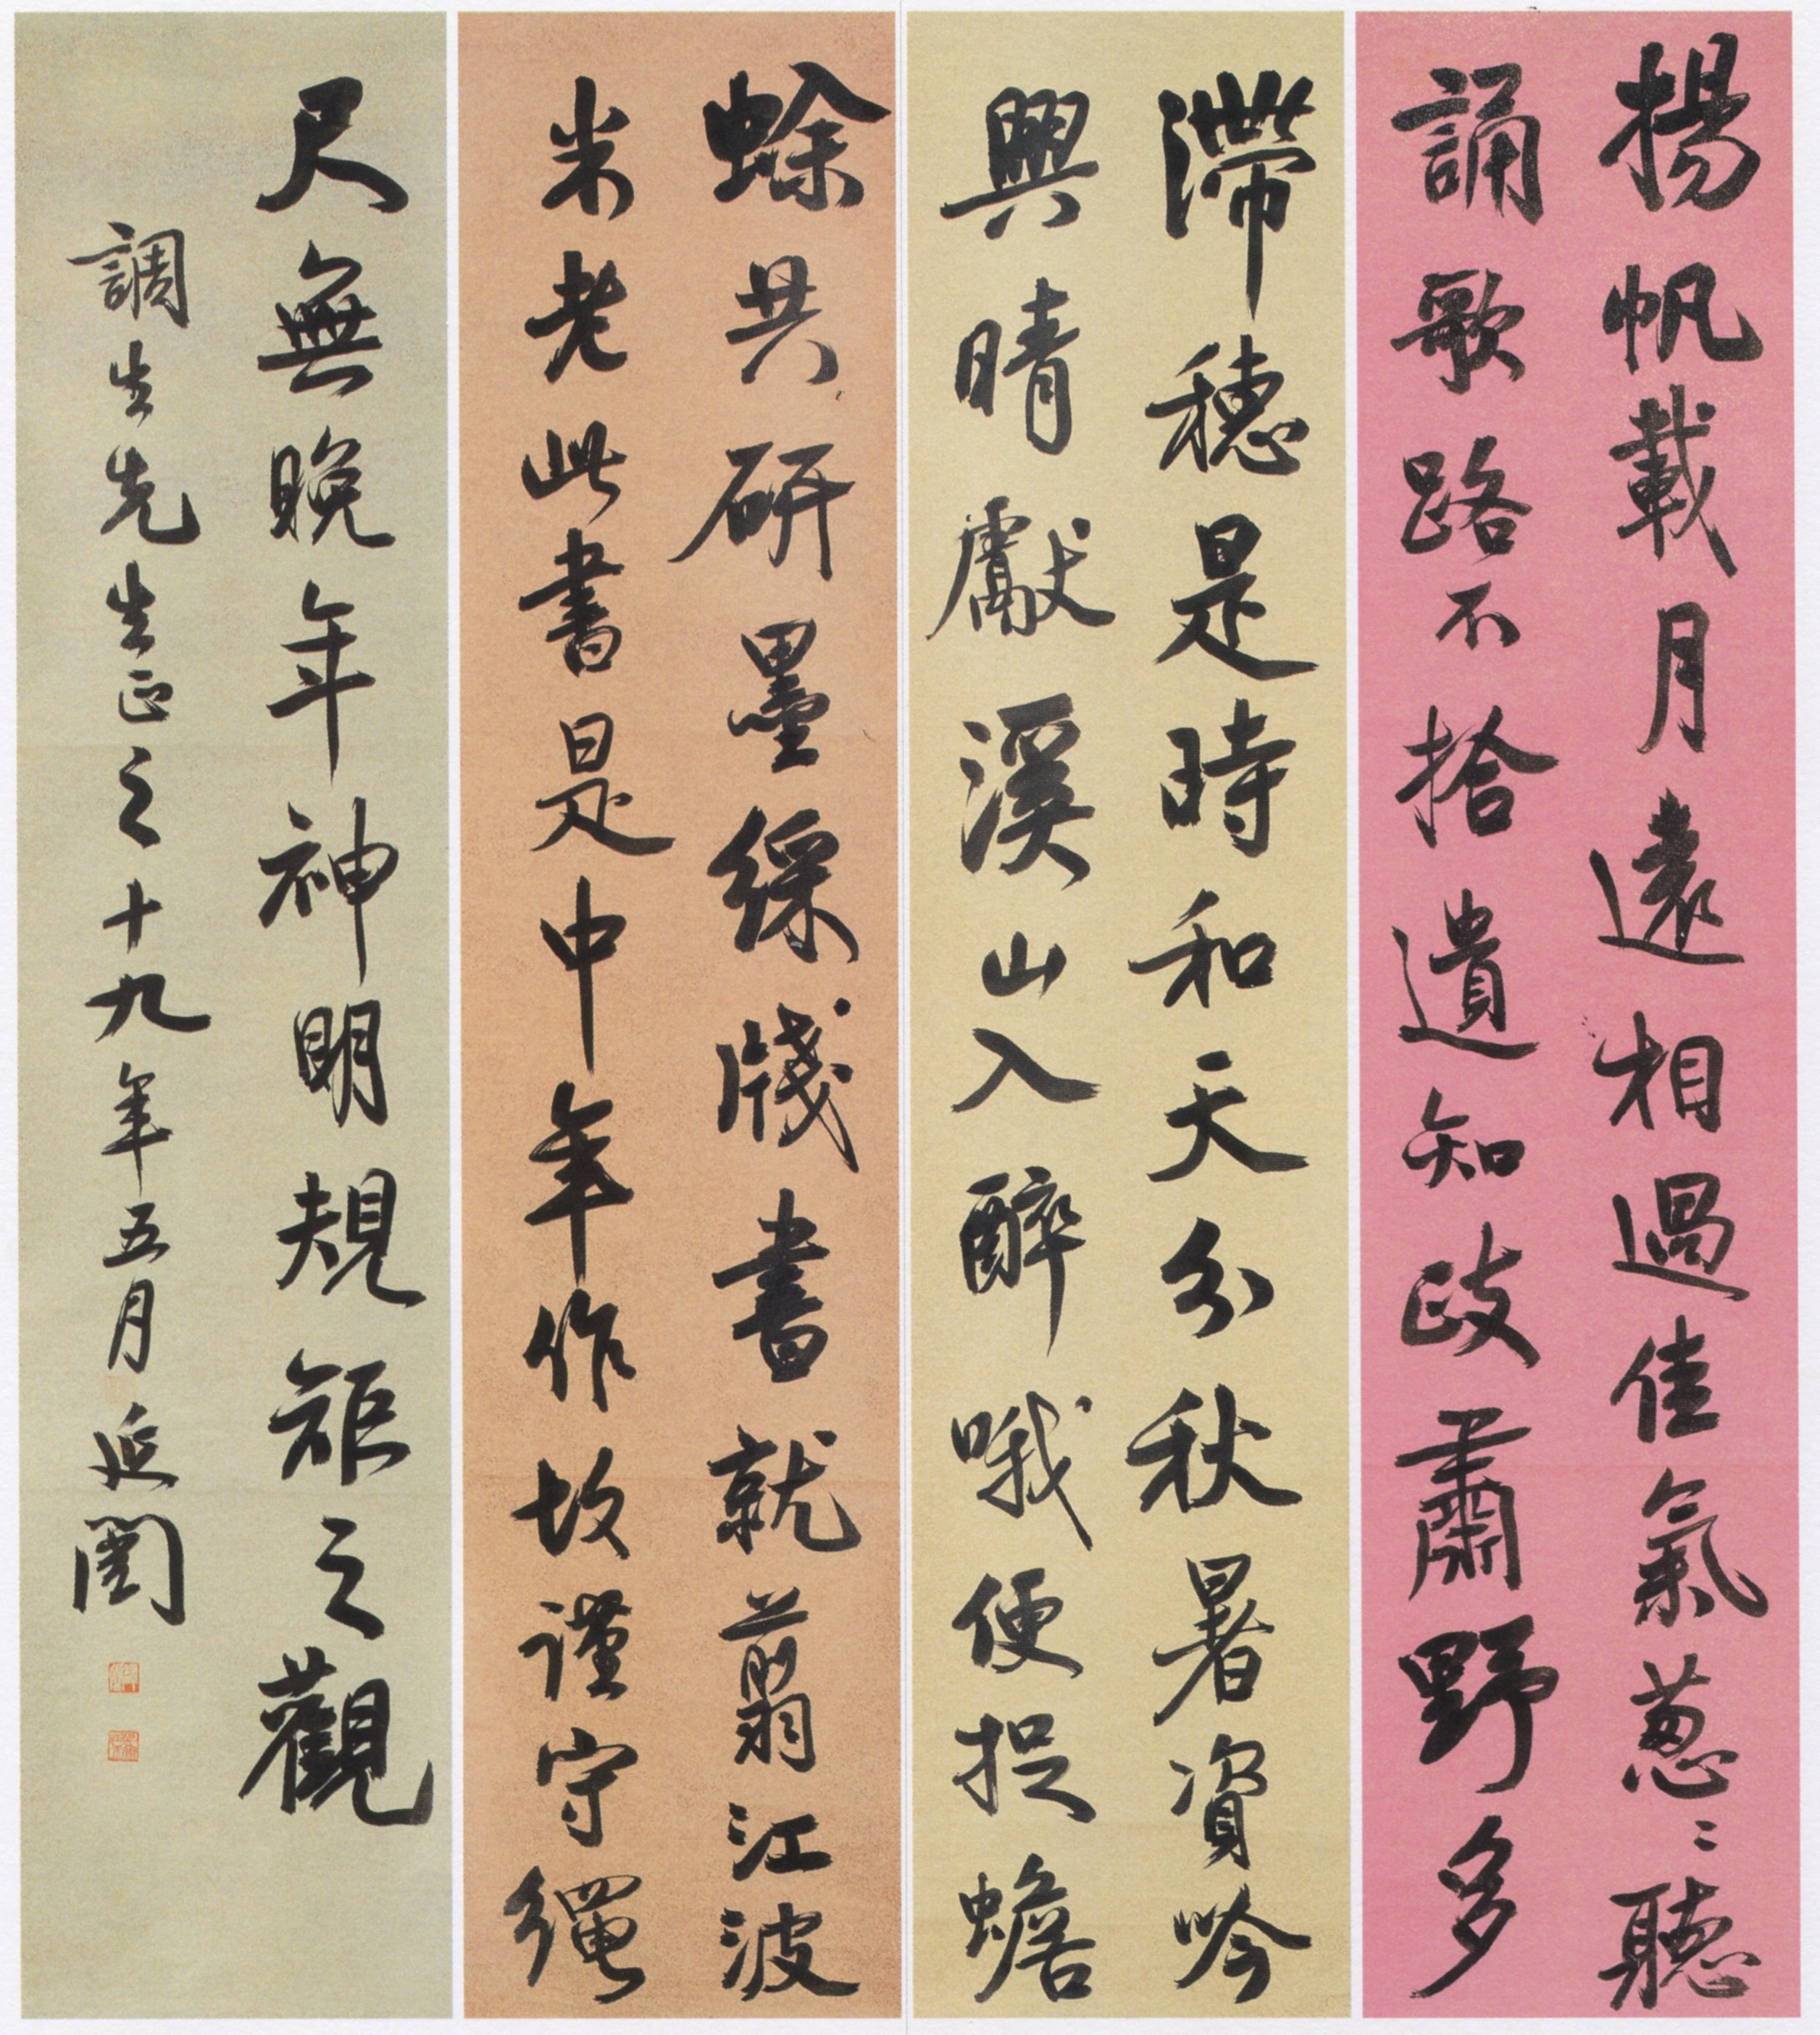 揚帆載月遠相過佳氣蔥〻聽
誦歌路不捨遺知政肅野多
滯穗是時和天分秋暑資吟
興晴獻溪山入醉哦便捉蟾
蜍共研墨綵牋書就翦江波
米老此書是中年作故謹守繩
尺無晚年神明規矩之觀
調生先生正之十九年五月延闓